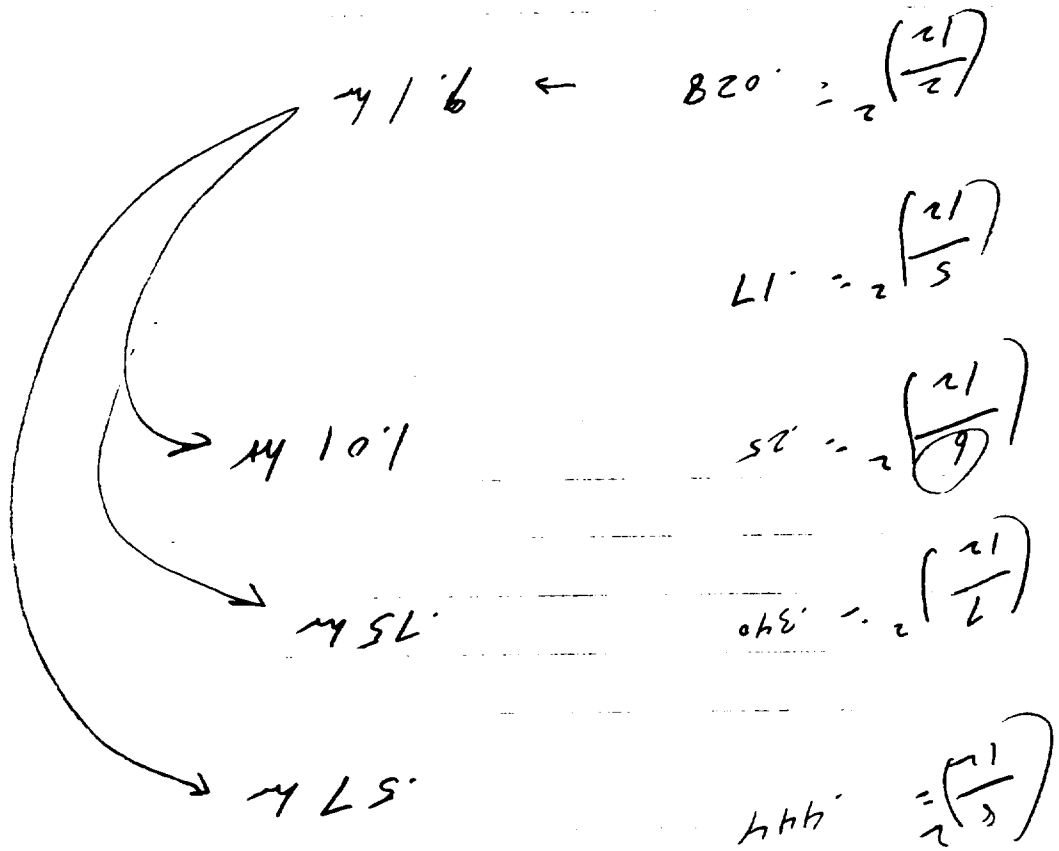 (8/12)² = .444 .57 hr
(7/12)² = .340 .75 hr
(6/12)² = .25 1.01 hr
(5/12)² = .17
(2/12)² = .028 → 9.1 hr